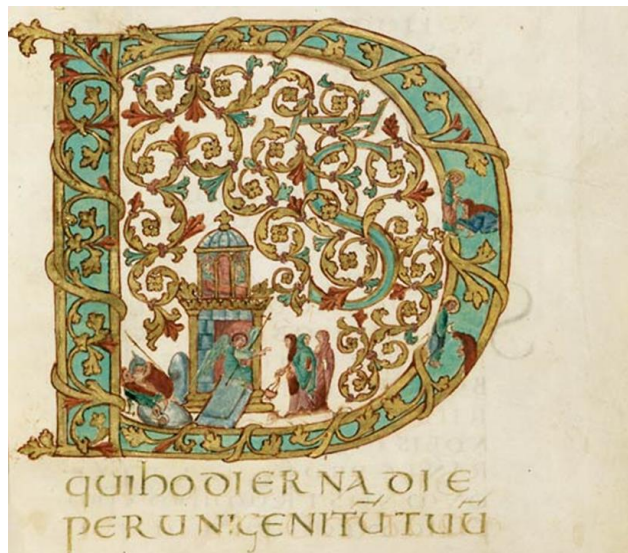 DS̄
QUIHODIERNA DIE
PERUNIGENITŪTUŪ